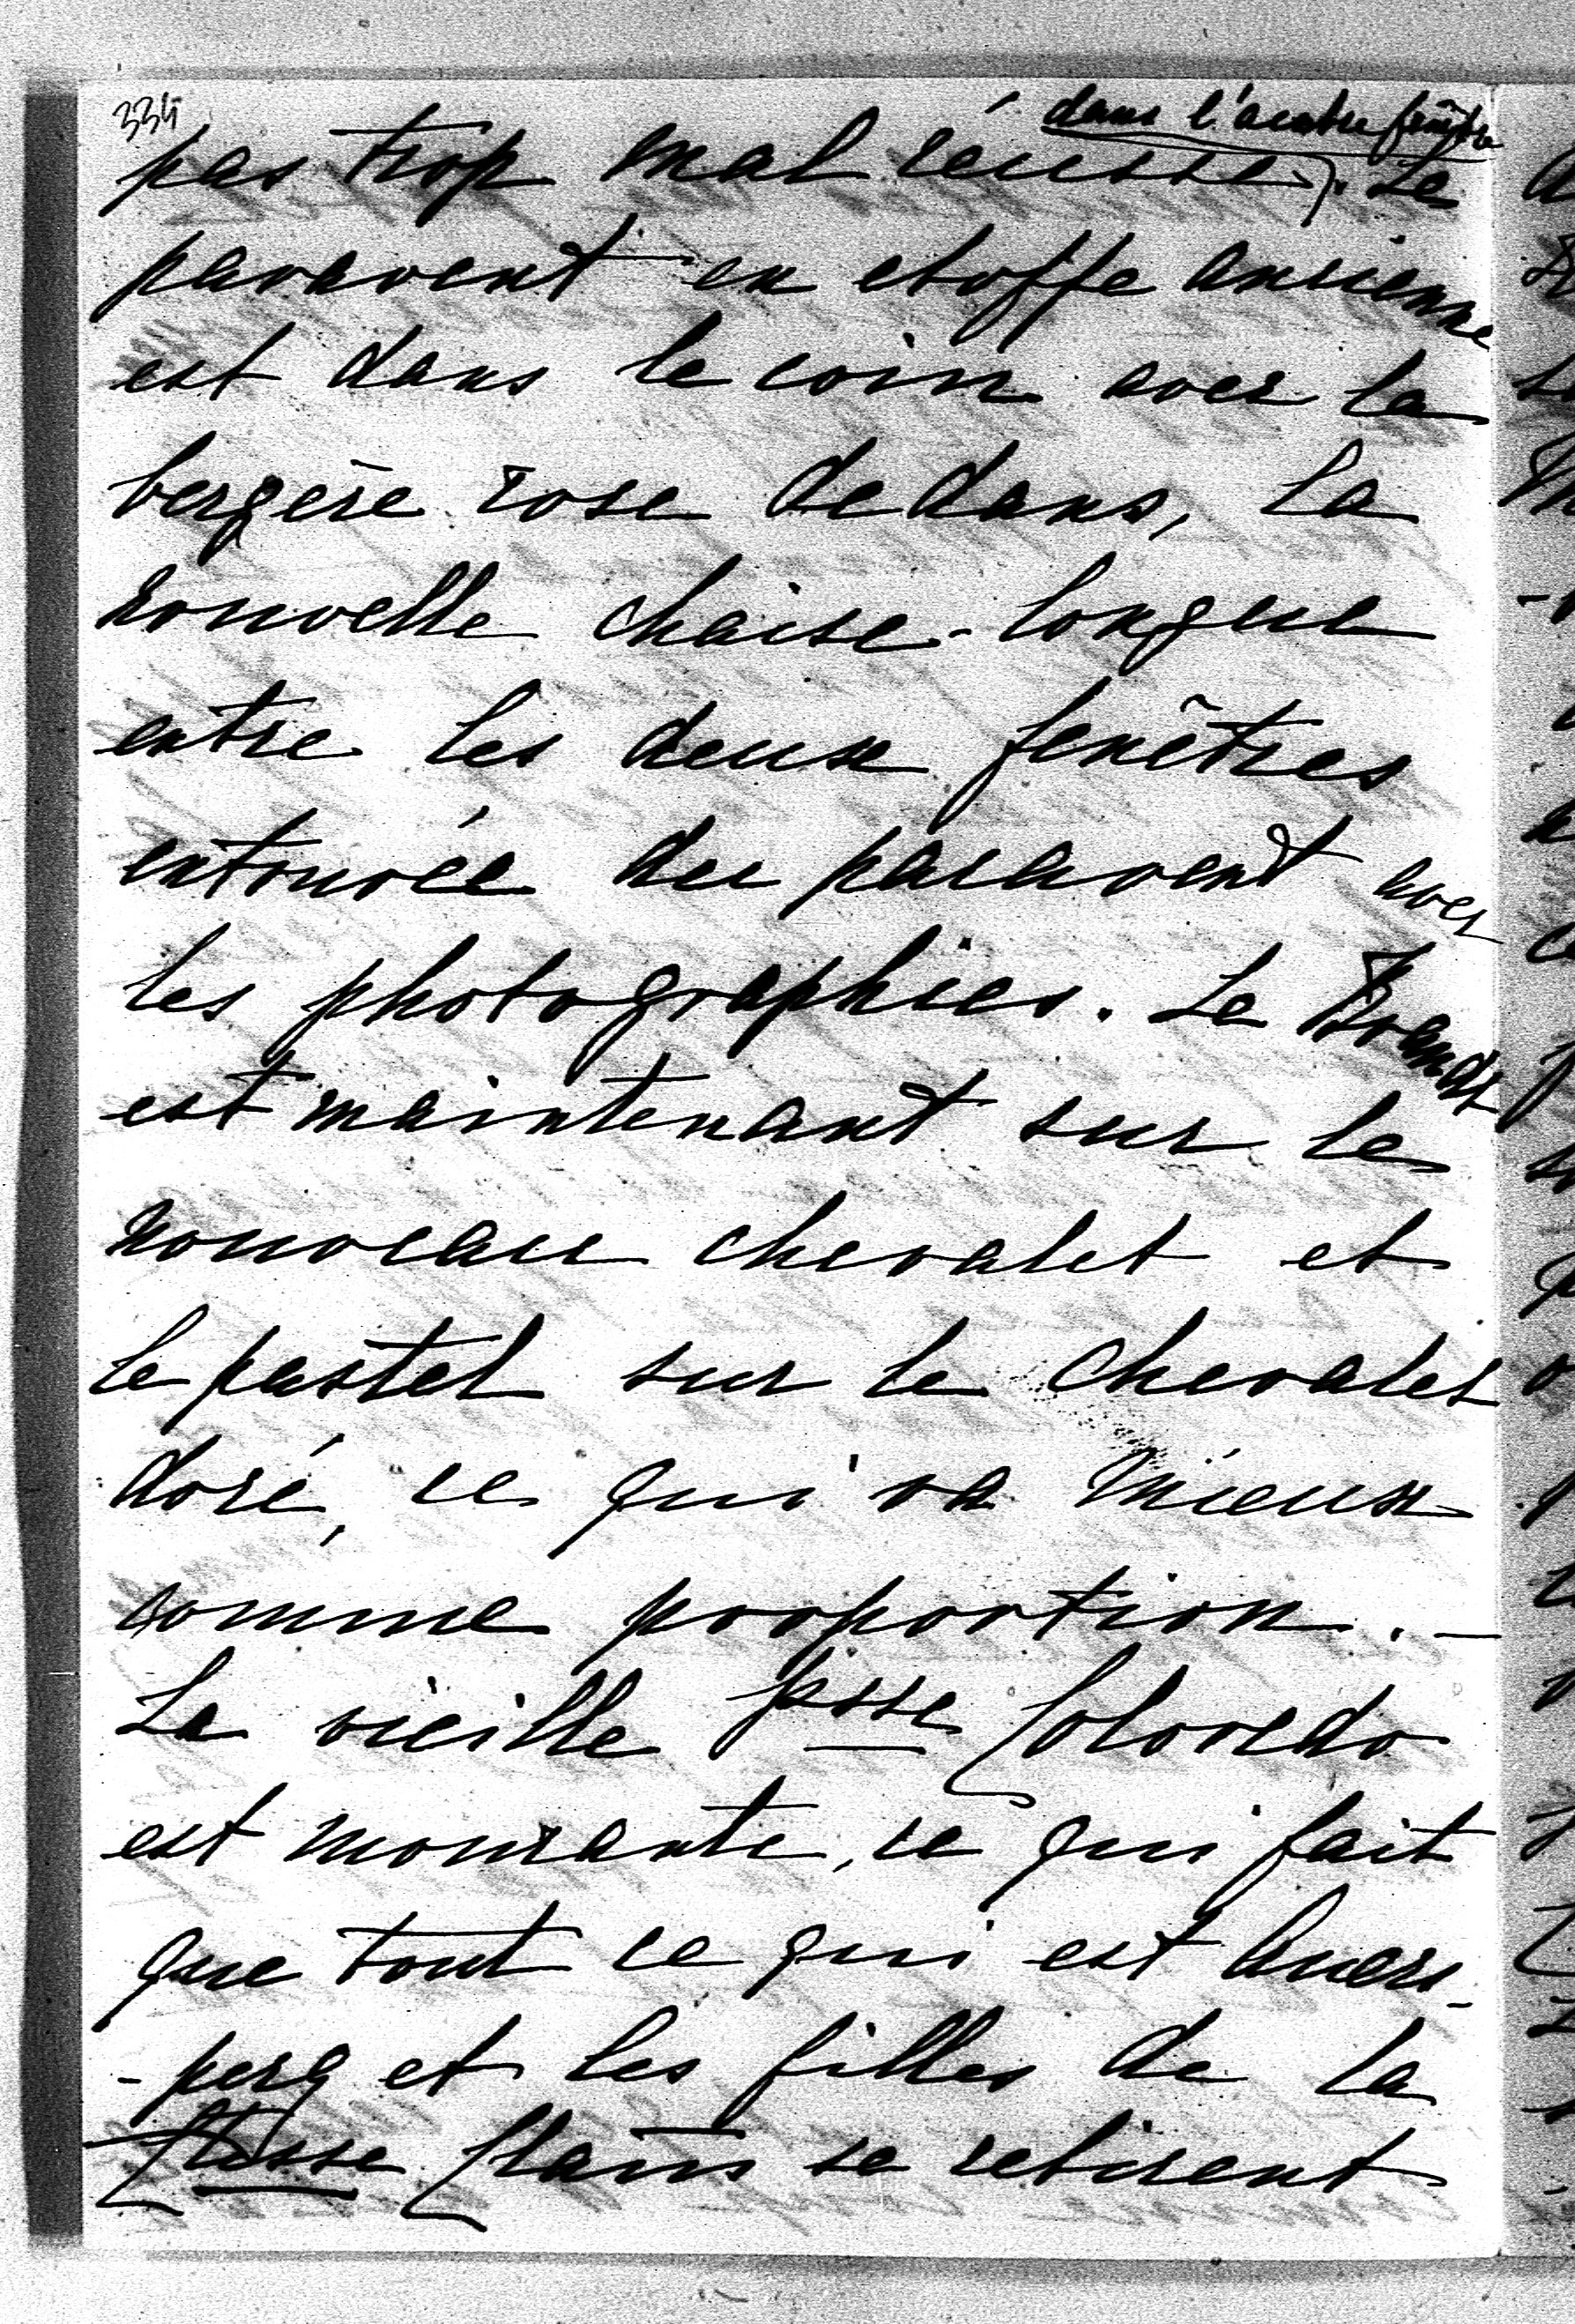 334
dans l'autre fenêtre
pas trop mal réussie). Le
paravent en etoffe ancienne
est dans le coin avec la
bergère rose dedans, la
nouvelle chaise-longue
entre les deux fenêtres
entourée du paravent avec
les photographies. Le
est maintenant sur le
nouveau chevalet et
le pastel sur le chevalet
doré, ce qui va mieux
comme proportion. –
La vieille Psse Coloredo
est mourante, ce qui fait
que tout ce qui est Auers-
-perg et les filles de la
Ctesse Clam se retirent